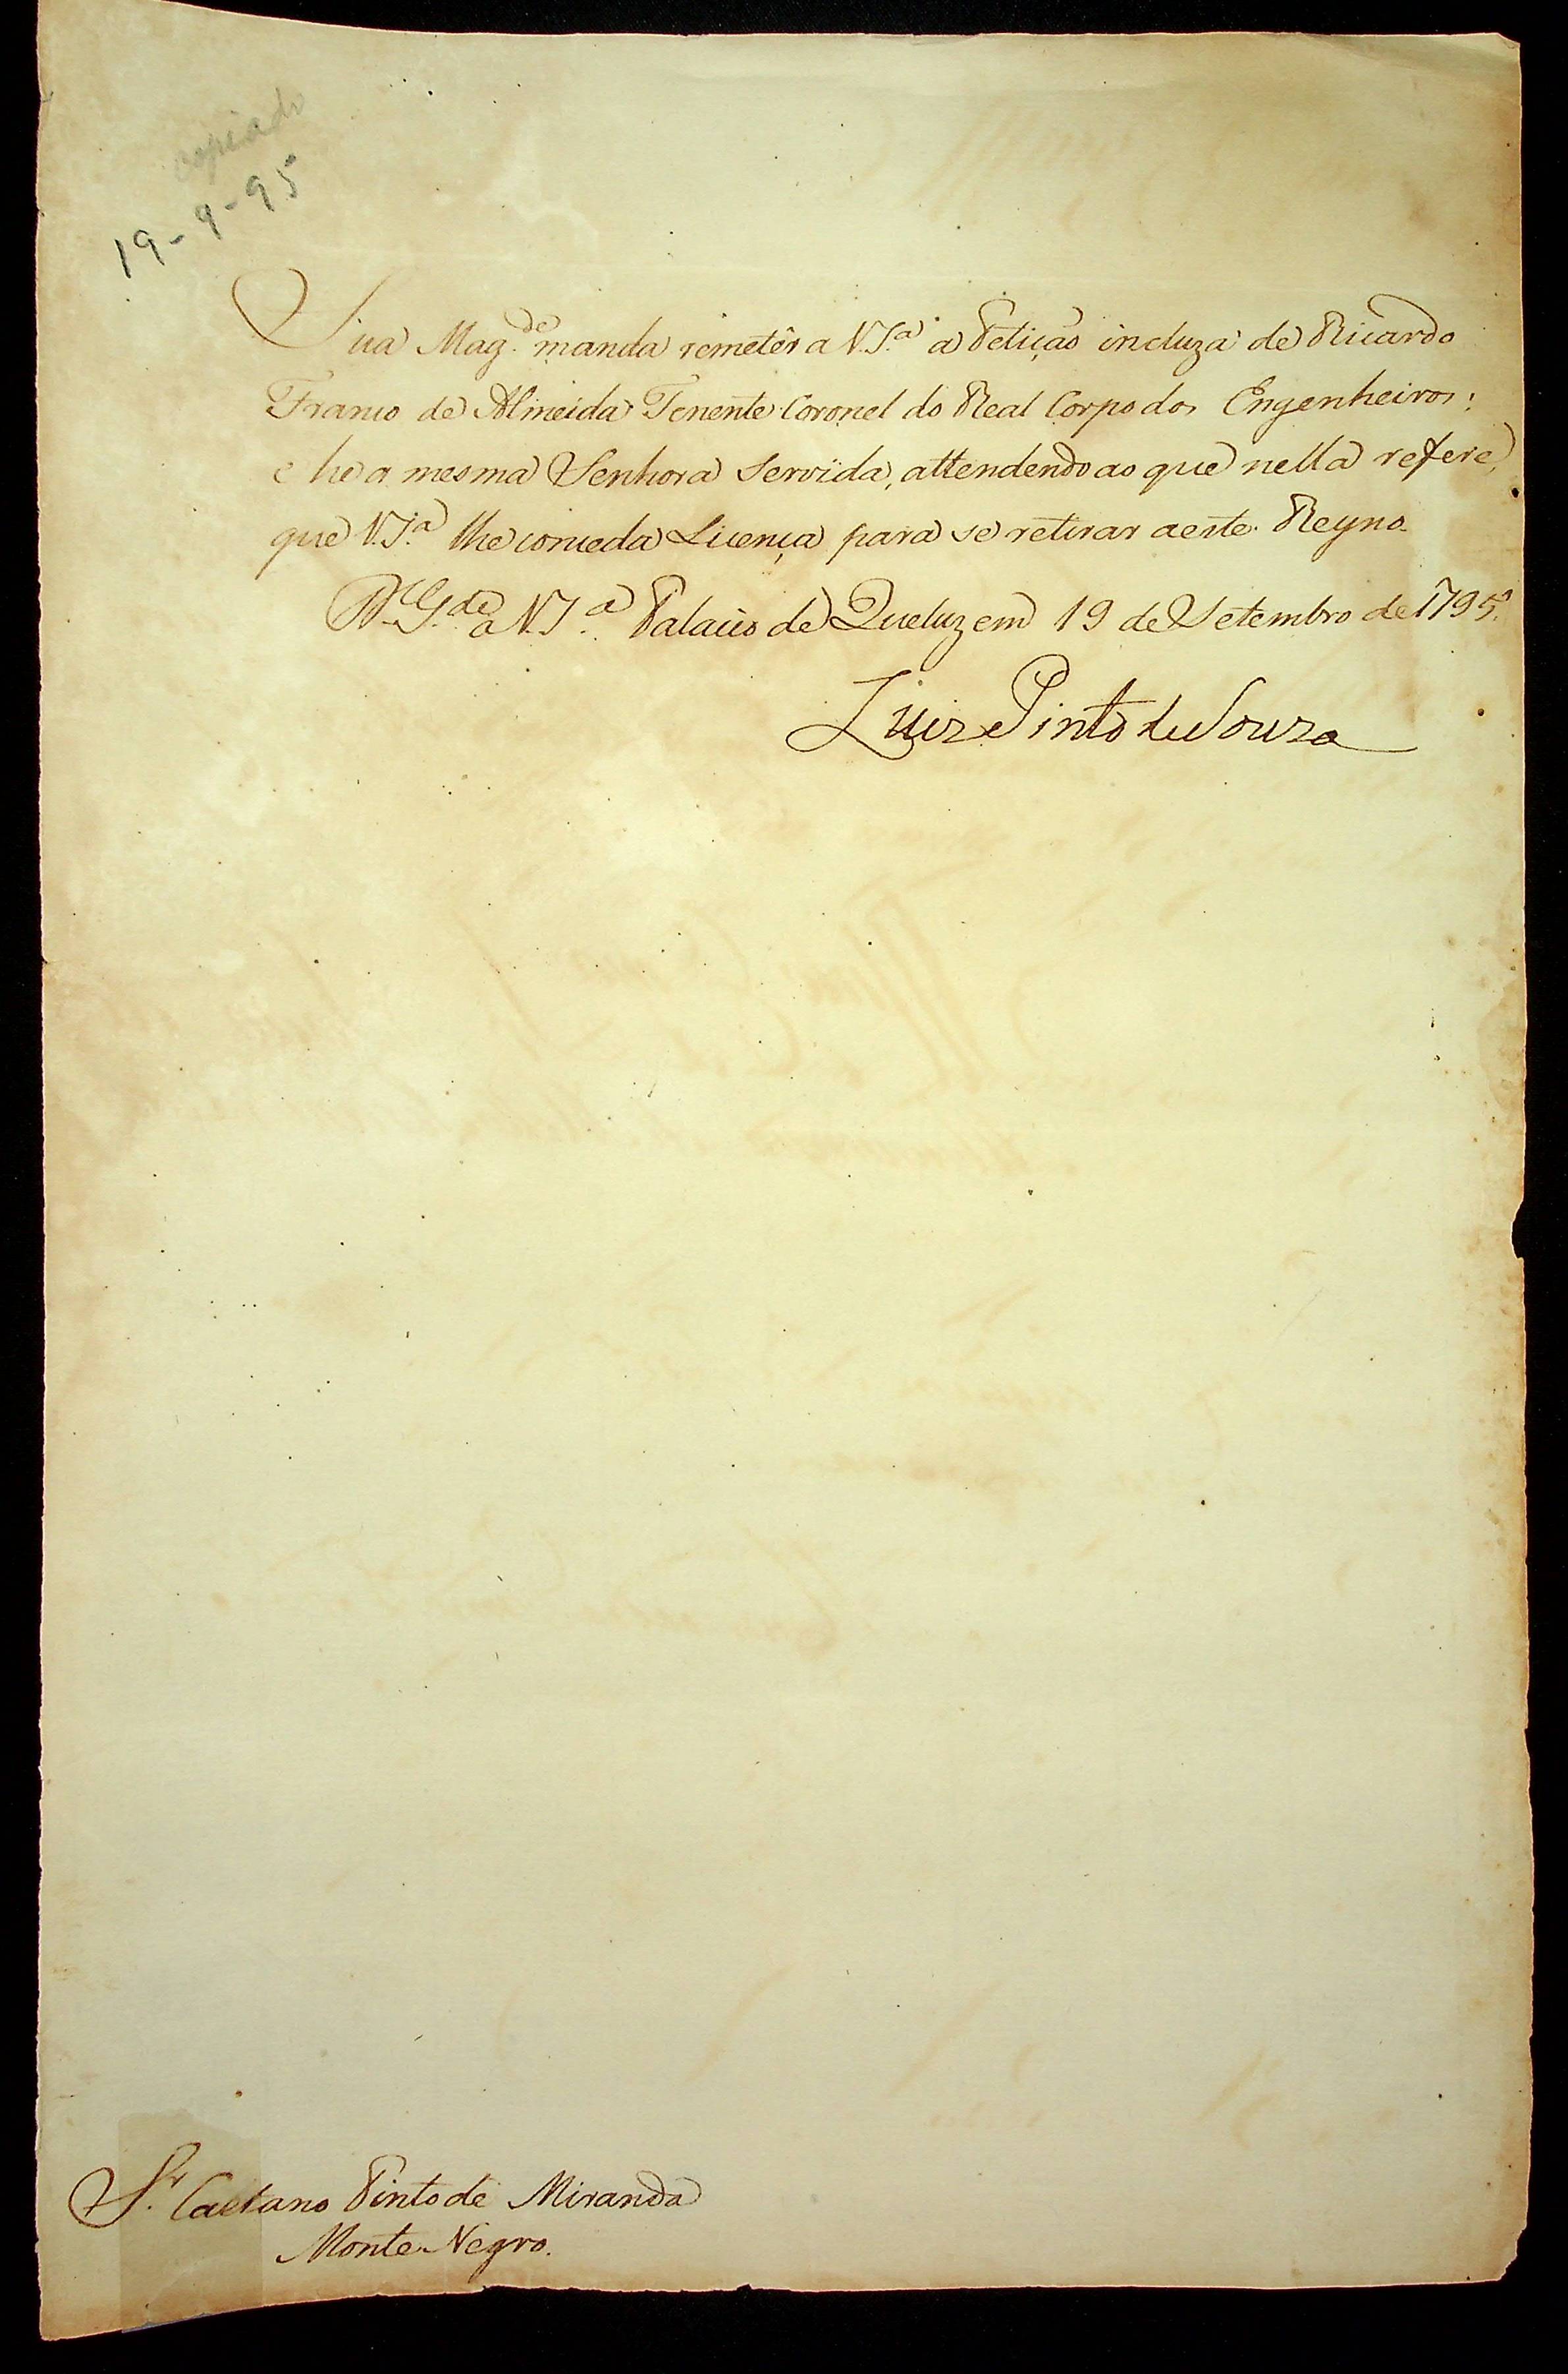 copiado
19-9-95
Sua Mag.de manda remetêr a V.S.a a Petição incluza de Ricardo
Franco de Almeida Tenente Coronel do Real Corpo dos Engenheiros:
e he a mesma Senhora Servida, attendendo ao que nella refere,
que V.S.a lhe conceda Licença para se retirar a este Reyno.
D.s G.de a V.S.a Palacio de Queluz em 19 de Setembro de 1795.
Luiz Pinto de Souza
S.r Caetano Pinto de Miranda
Monte Negro.